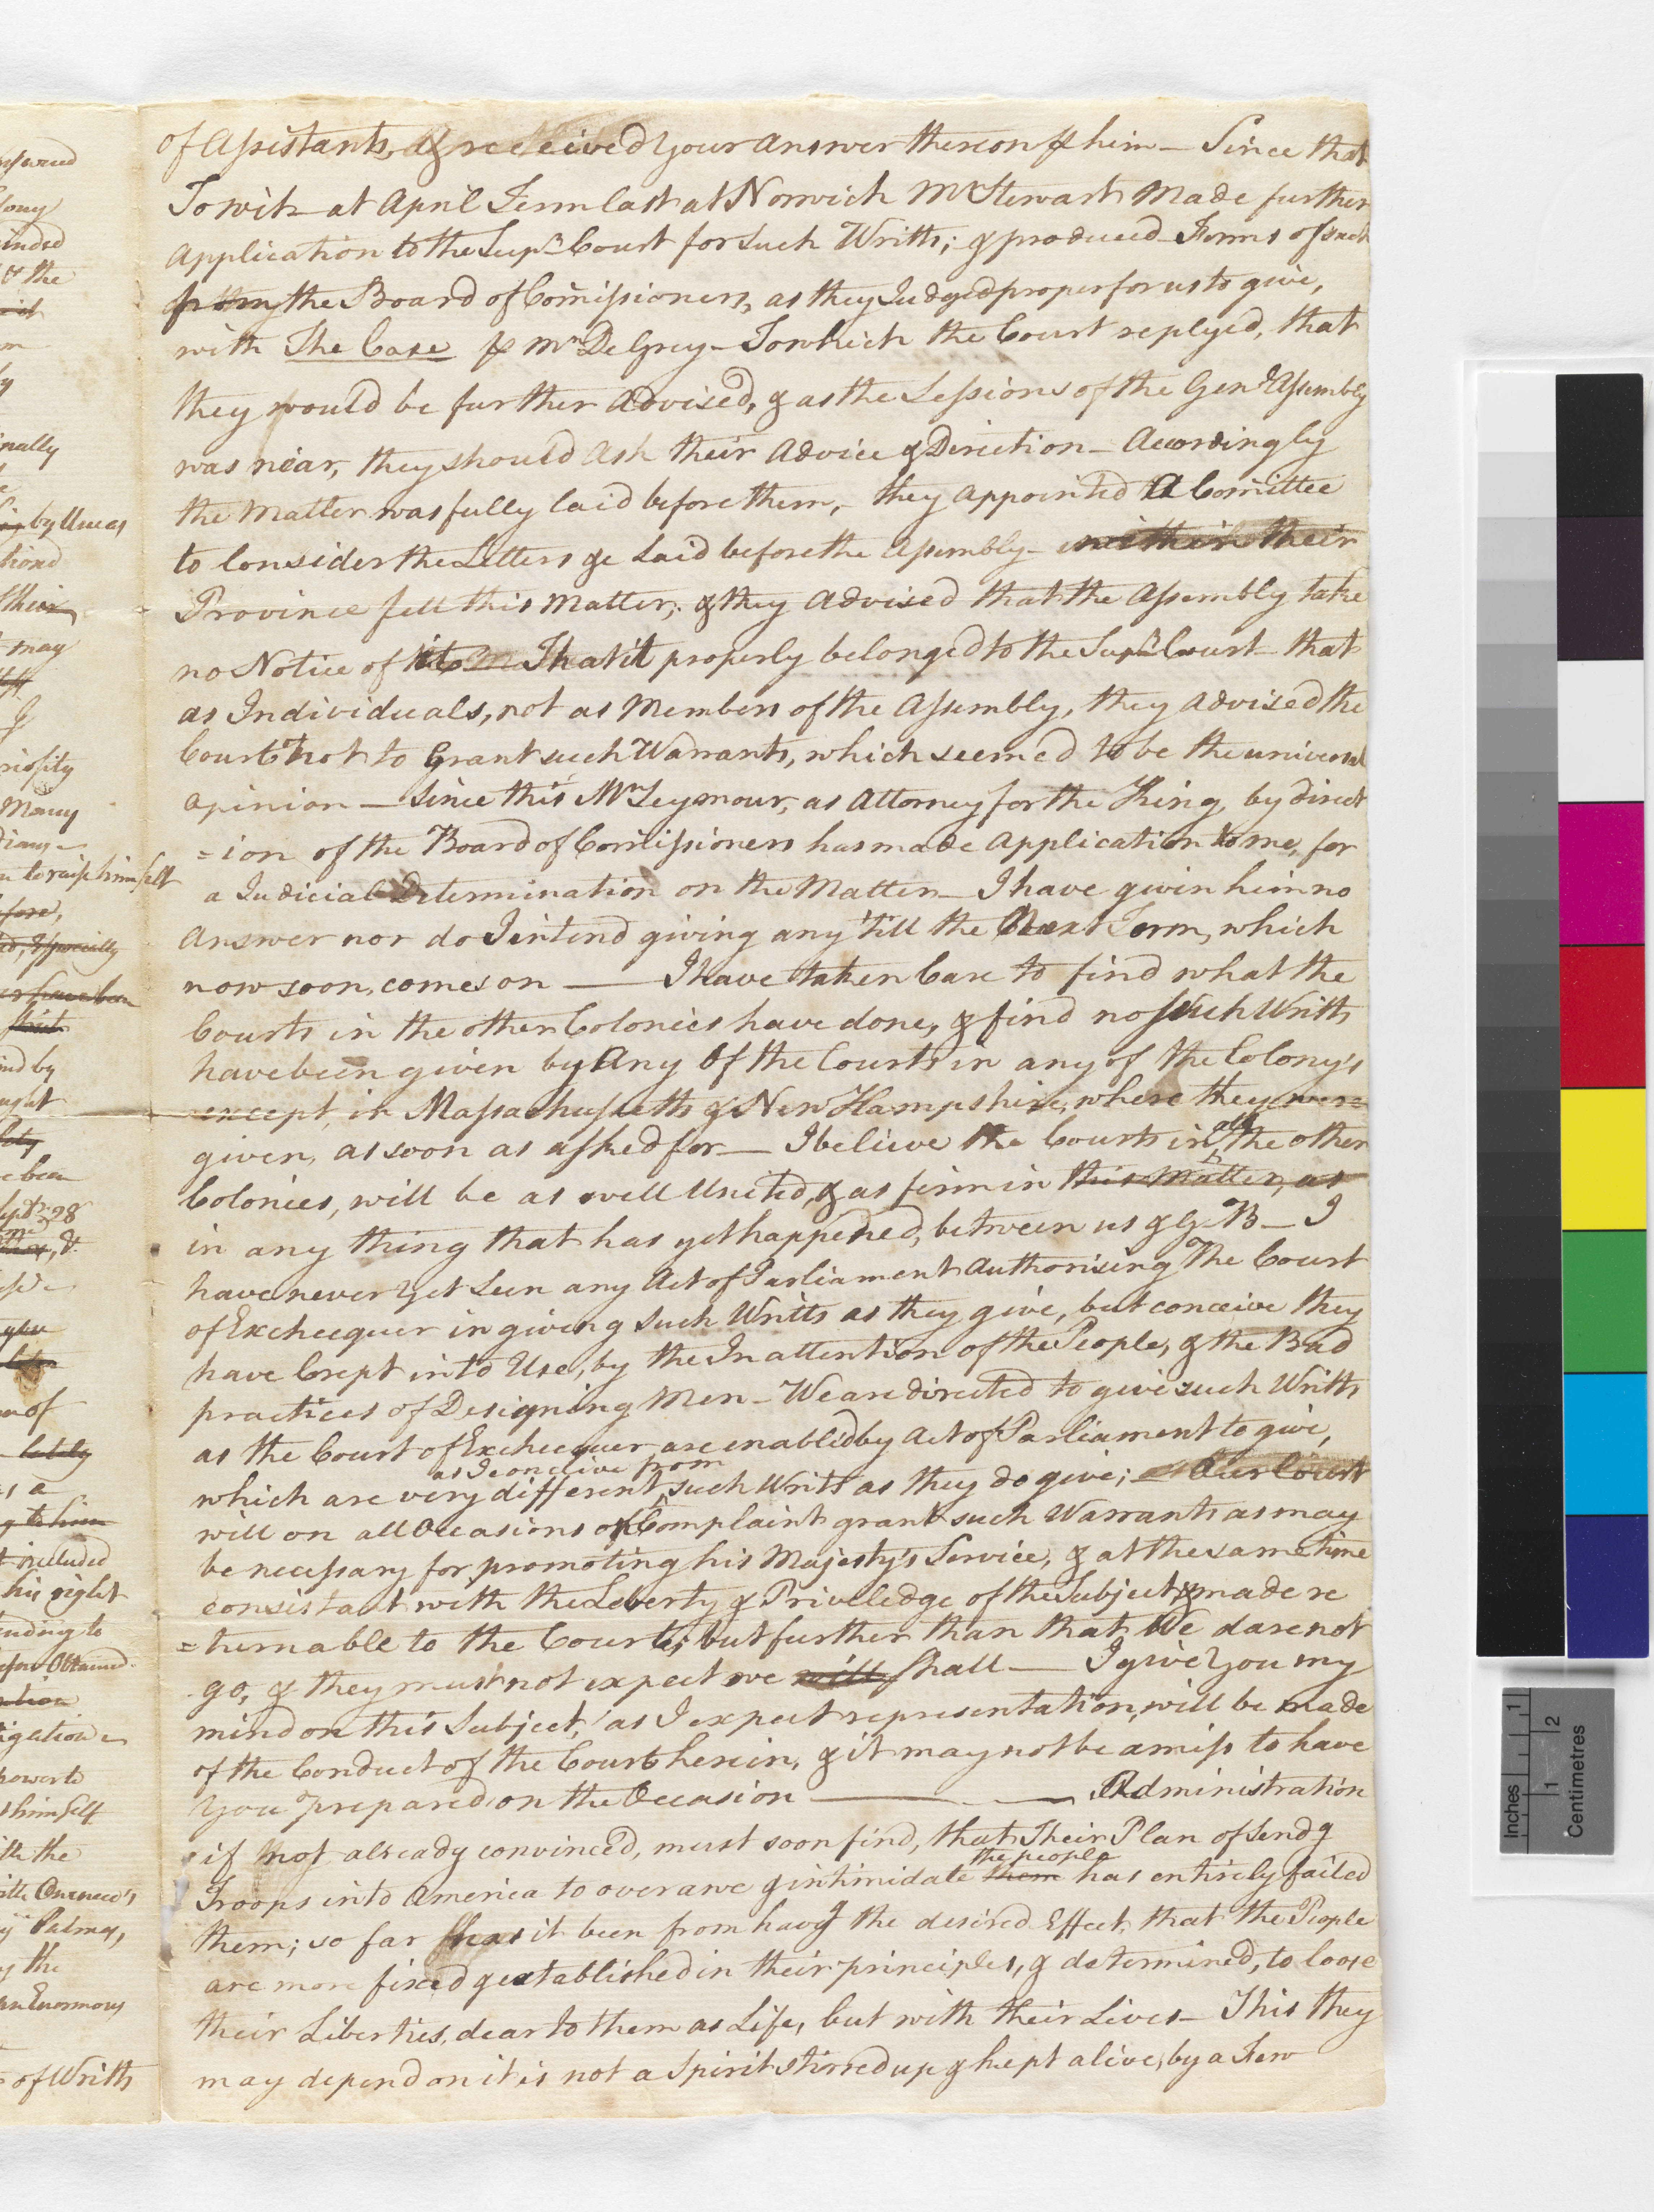 of Assistants, & received your answer thereon ⅌ him — Since that
To wit — at April Term last at Norwich Mr Stewart Made further
application to the Supr Court for such Writts; & produced Forms of such
from the Board of Comissioners, as they Judged proper for us to give,
with The Case ⅌ Mr De Grey — To which the Court replyed, that
they would be further advised, & as the Sessions of the Genl Assembly
was near, they should Ask their Advice & Direction — Accordingly
the Matter was fully laid before them, they appointed A Comittee
to Consider the Letters &c laid before the Assembly — within their
Province fell this Matter; & they advised that the Assembly take
no Notice of it — That it properly belonged to the Supr Court — that
as Individuals, not as Members of the Assembly, they advised the
Court not to Grant such Warrants, which seemed to be the universal
opinion — Since this Mr Seymour, as Attorney for the King, by direct
=ion of the Board of Comissioners has made application to me, for
a Judicial Determination on the Matter — I have given him no
Answer nor do I intend giving any till the Next Term, which
now soon, comes on — I have taken Care to find what the
Courts in the other Colonies have done, & find no such Writts
have been given by Any Of the Courts in any of the Colony's
except, in Massachussetts & New Hampshire, where they were
given, as soon as assked for — I believe the Courts in all the other
Colonies, will be as well United, & as firm in this Matter, as
in any thing that has yet happened, between us & G B — I
have never yet seen any Act of Parliament Authorising The Court
of Exchequer in giving such Writts as they give, but conceive they
have Crept into Use, by the Inattention of the People, & the Bad
practices of Designing Men — We are directed to give such Writts
as the Court of Exchequer are enabled by Act of Parliament to give,
as I conceive from
which are very different such Writs as they do give; — Our Court
will on all Occasions of Complaint grant such Warrants as may
be necessary for promoting his Majesty's Service, & at the same time
consistant with the Leberty & Priveledge of the Subject & made re
=turnable to the Court; but further than that We dare not
go, & they must not expect we will shall — I give You my
mind on this Subject, as I expect representation, will be made
of the Conduct of the Court herein, & it may not be amiss to have
You prepared on the Occasion — Administration
if not already convinced, must soon find, that Their Plan of Sendg
the people
Troops into America to overawe & intimidate them has entirely failed
them; so far has it been from havg the desired Effect, that the People
are more fixed & established in their principles, & determined, to loose
their Liberties, dear to them as Life, but with their Lives — This they
may depend on it is not a Spirit stirred up & kept alive, by a Few
the
by Uneas
may
Many
to raise himself
especially
have been
of
included
his right
Obtained
himself
with the
Palmes,
the
Enormous
of Writts
Inches 1
Centimetres 1 2